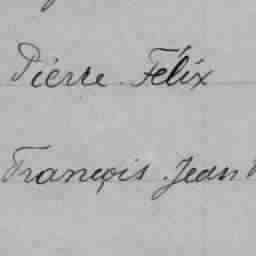 Pierre Félix
François Jean